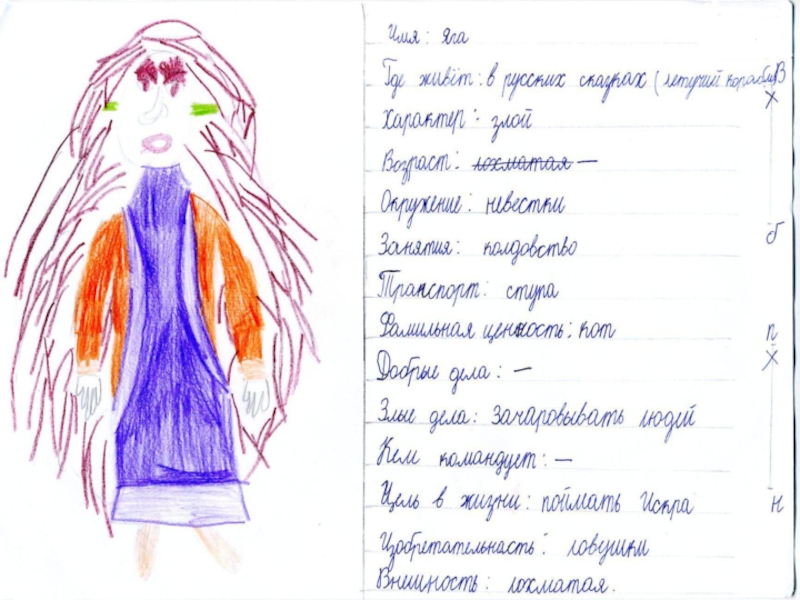 Имя: Яга
Где живёт: в русских сказках (летучий корабль)
В
Х
Характер: злой
Возраст: лохматая —
Окружение: невестки
б
Занятия: колдовство
Транспорт: ступа
Фамильная ценность: кот
п
Х
Добрые дела: —
Злые дела: Зачаровывать людей
Кем командует: —
Цель в жизни: поймать Искра
н
Изобретательность: ловушки
Внешность: лохматая.